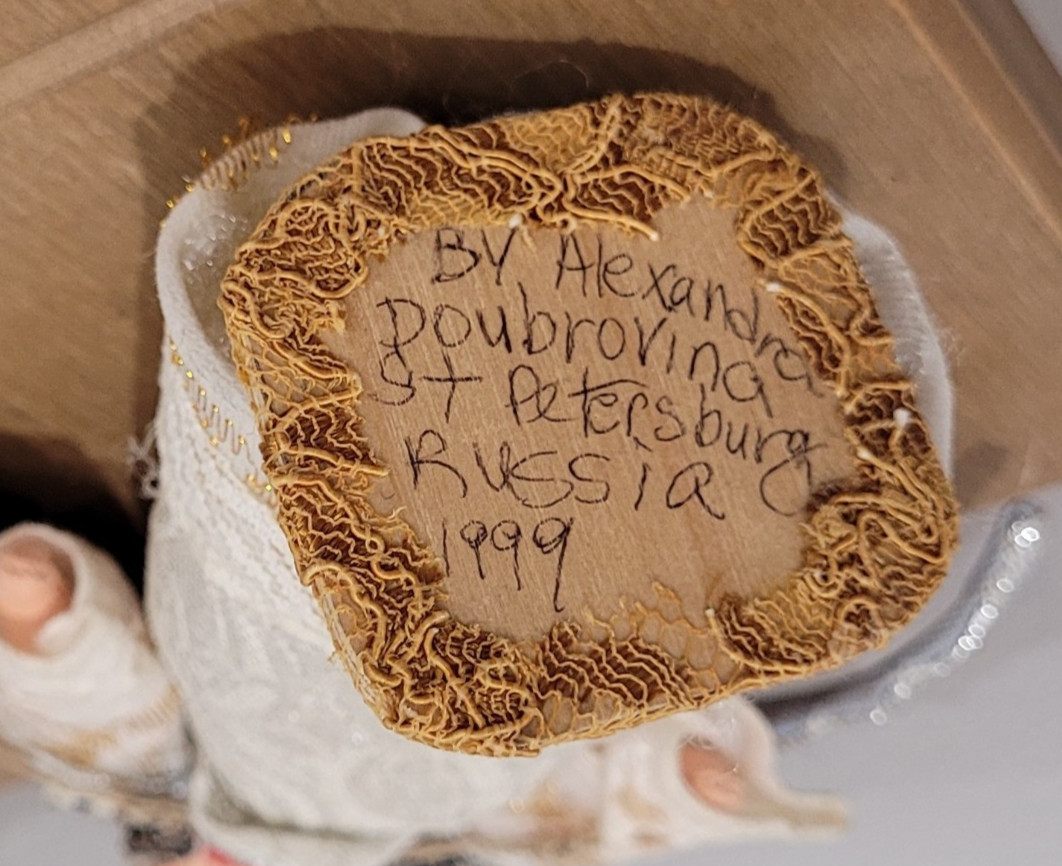 BY Alexandra
Doubrovina
ST Petersburg
RUSSia
1999